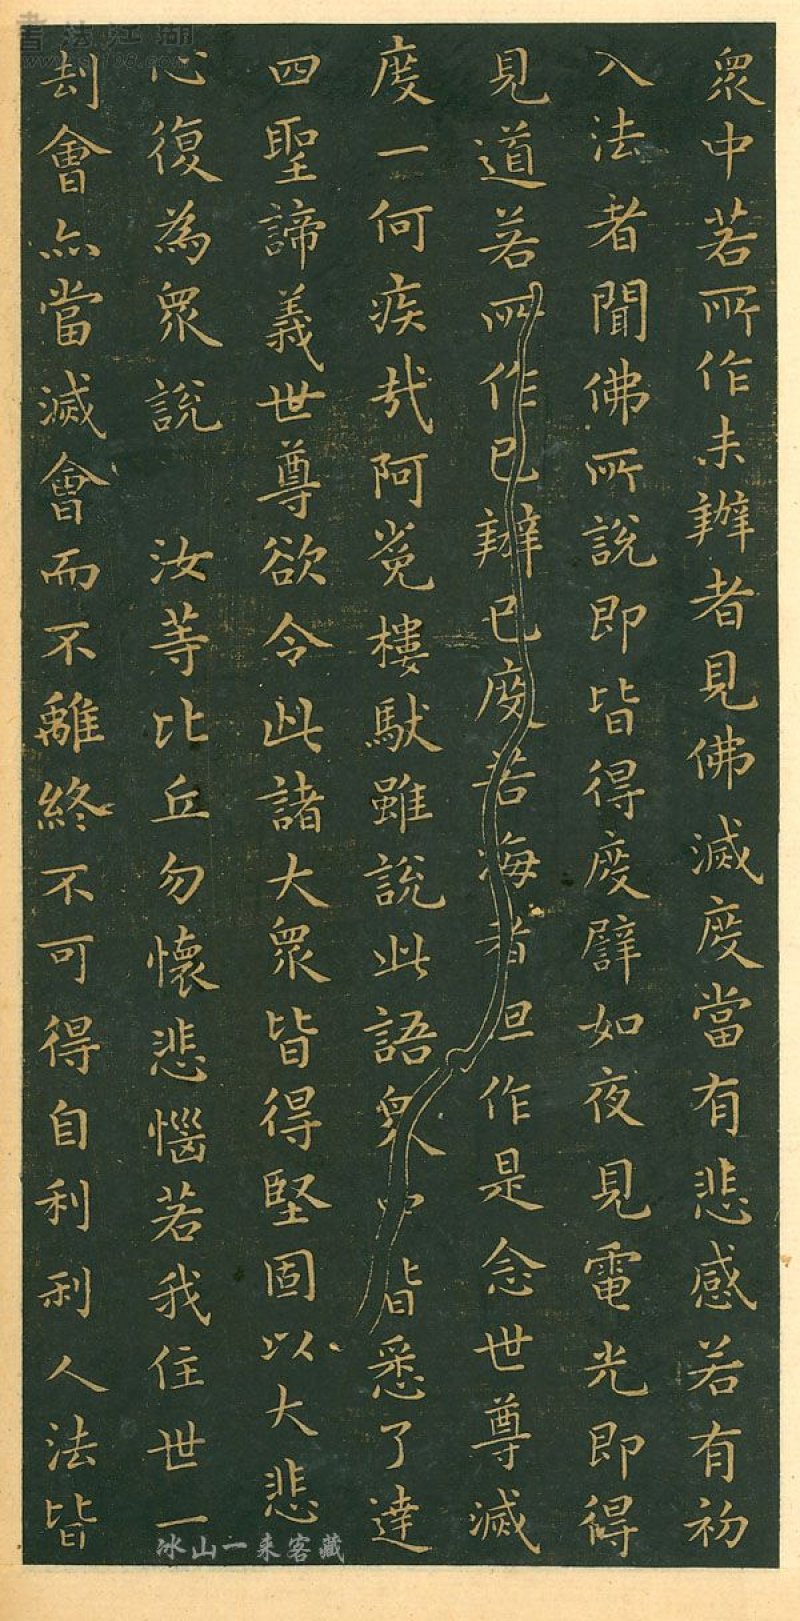 衆中若所作未辦者見佛滅度當有悲感若有初
入法者聞佛所說即皆得度譬如夜見電光即得
見道若所作已辦已度苦海者但作是念世尊滅
度一何疾哉阿㝹樓馱雖說此語衆中皆悉了達
四聖諦義世尊欲令此諸大衆皆得堅固以大悲
心復為衆說 汝等比丘勿懷悲惱若我住世一
刦會亦當滅會而不離終不可得自利利人法皆
书法江湖
冰山一来客藏